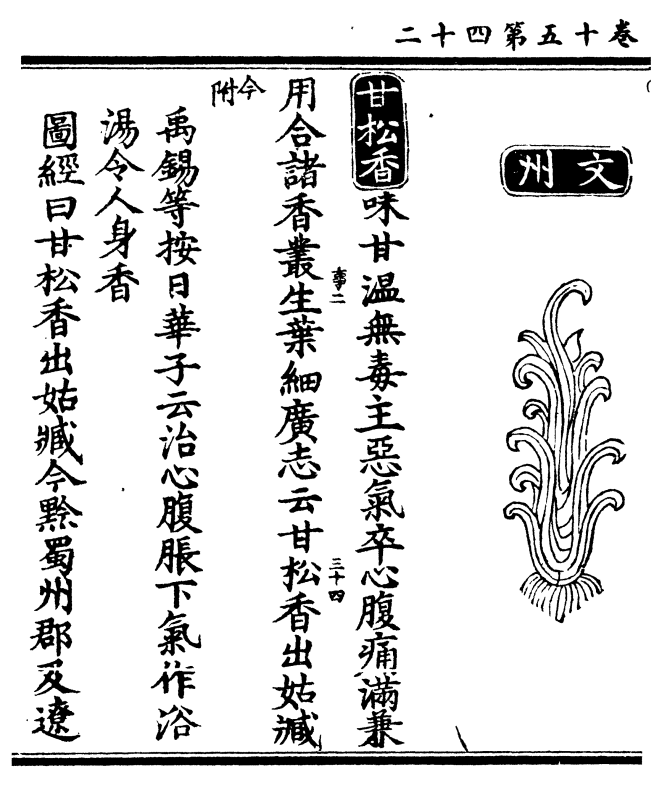 卷十五第四十二
文州
甘松香味甘溫無毒主惡氣卒心腹痛滿兼
用合諸香叢生葉細廣志云甘松香出姑臧
今附
禹錫等按日華子云治心腹脹下氣作浴
湯令人身香
圖經曰甘松香出姑臧今黔蜀州郡及遼
三十四